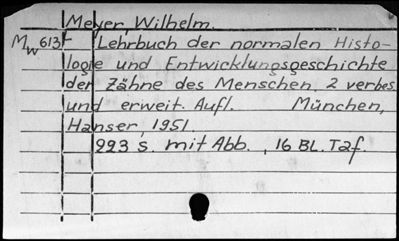 Meyer, Wilhelm.
Mw 613 - Lehrbuch der normalen Histo-
logie und Entwicklungsgeschichte
der Zähne des Menschen, 2 verbes.
und erweit. Aufl. München,
Hanser, 1951.
223 s. mit Abb., 16 BL. Taf.